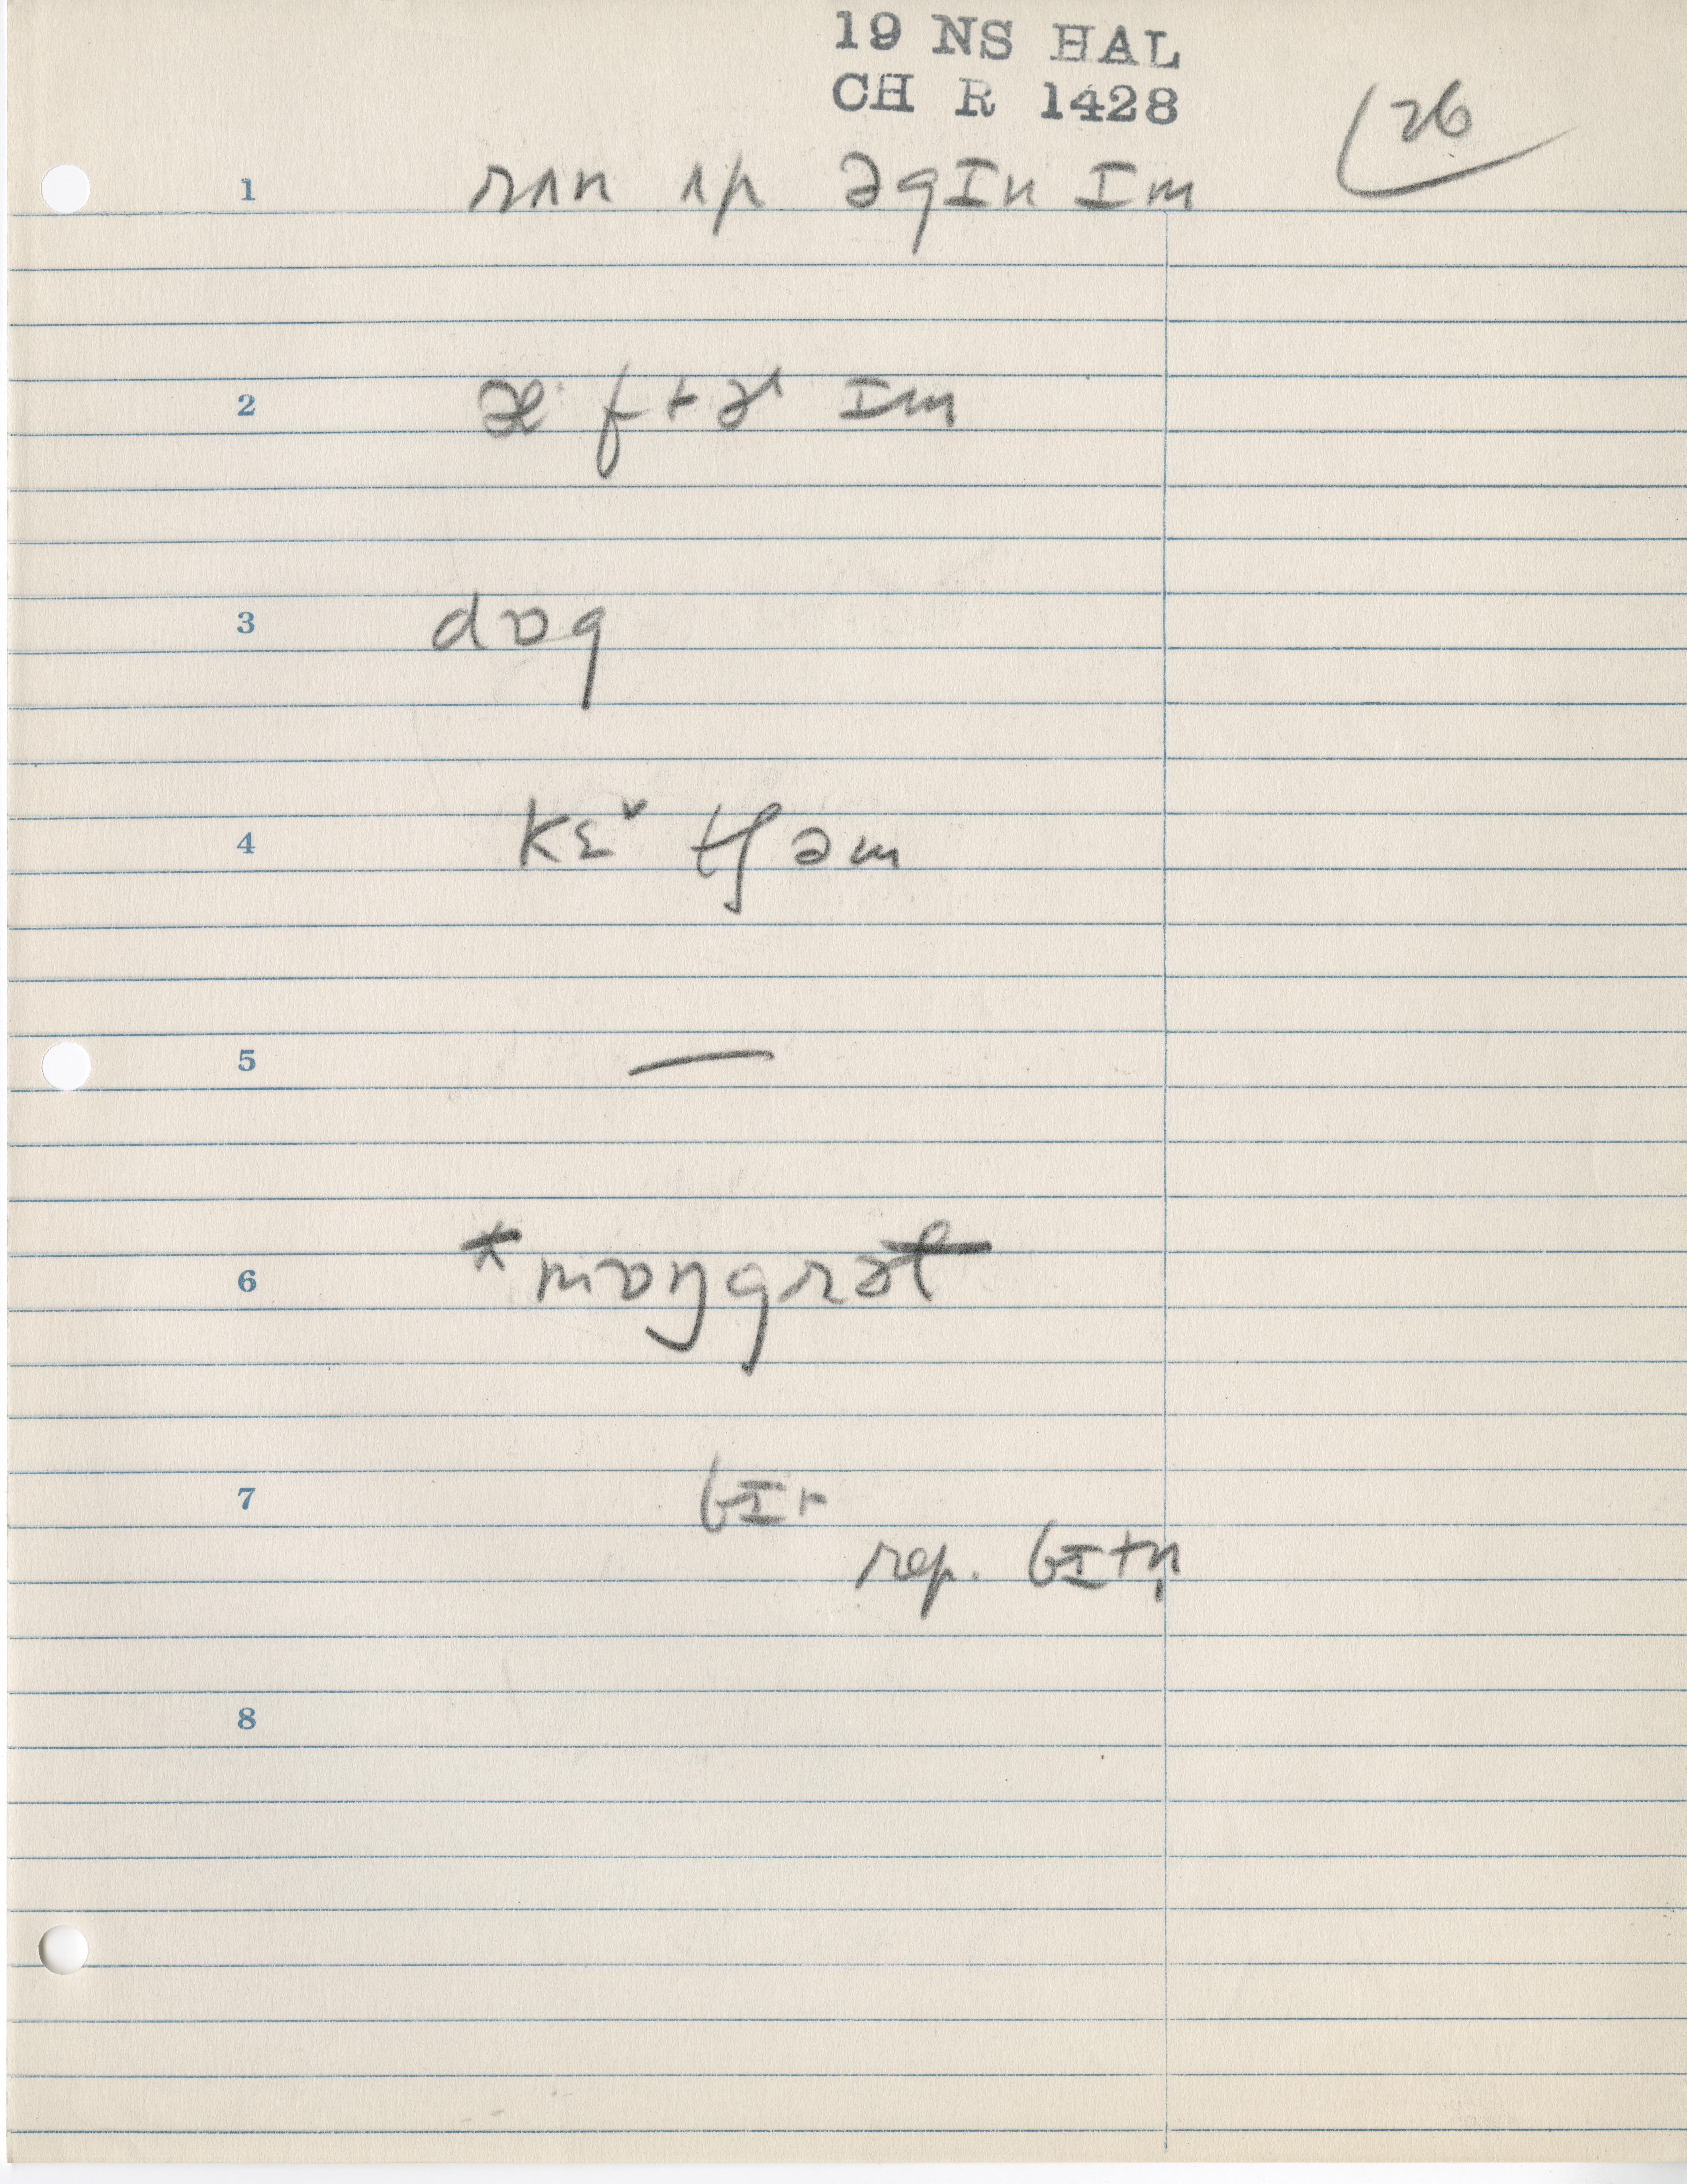 19 NS HAL
CH R 1428
26
1 rʌn ʌp əgɪn ɪm
2 æˑftɚ ɪm
3 dɒg
4 kɛˇ tʃəm
5 —
6 *mɒŋgrəl
7 bɪt
rep. bɪtn̩
8